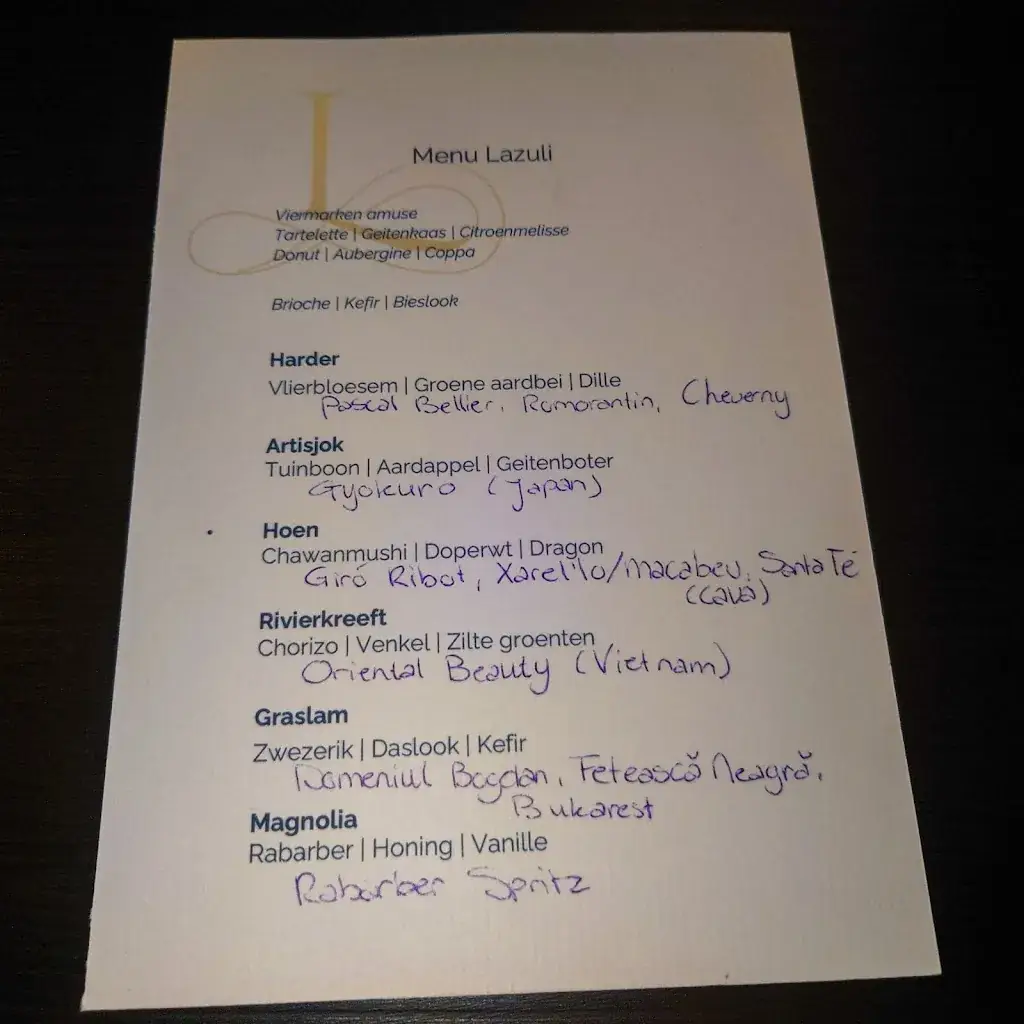 L
Menu Lazuli
Viermarken amuse
Tartelette | Geitenkaas | Citroenmelisse
Donut | Aubergine | Coppa
Brioche | Kefir | Bieslook
Harder
Vlierbloesem | Groene aardbei | Dille
Pascal Bellier, Romorantin, Cheverny
Artisjok
Tuinboon | Aardappel | Geitenboter
Gyokuro (Japan)
Hoen
Chawanmushi | Doperwt | Dragon
Giró Ribot, Xarel'lo/macabeu, Santa Fé
(Cava)
Rivierkreeft
Chorizo | Venkel | Zilte groenten
Oriental Beauty (Vietnam)
Graslam
Zwezerik | Daslook | Kefir
Domeniul Bogdan, Fetească Neagră,
Bukarest
Magnolia
Rabarber | Honing | Vanille
Rabarber Spritz